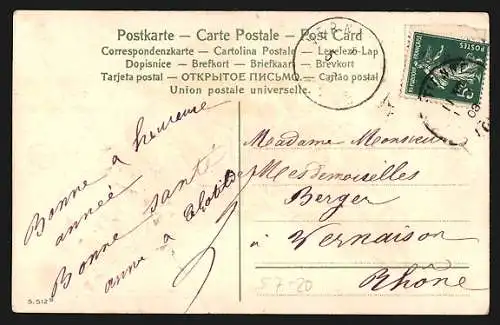 Postkarte – Carte Postale – Post Card
Correspondenzkarte – Cartolina Postale – Levelező-Lap
Dopisnice – Brefkort – Briefkaart – Brevkort
Tarjeta postal – ОТКРЫТОЕ ПИСЬМО – Cartão postal
Union postale universelle.
POSTES
Bonne & heureuse
année
Bonne santé
anna & Clotilde
Madame Monsieur
Mesdemoiselles
Berger
à Vernaison
Rhône
57-20
S. 512